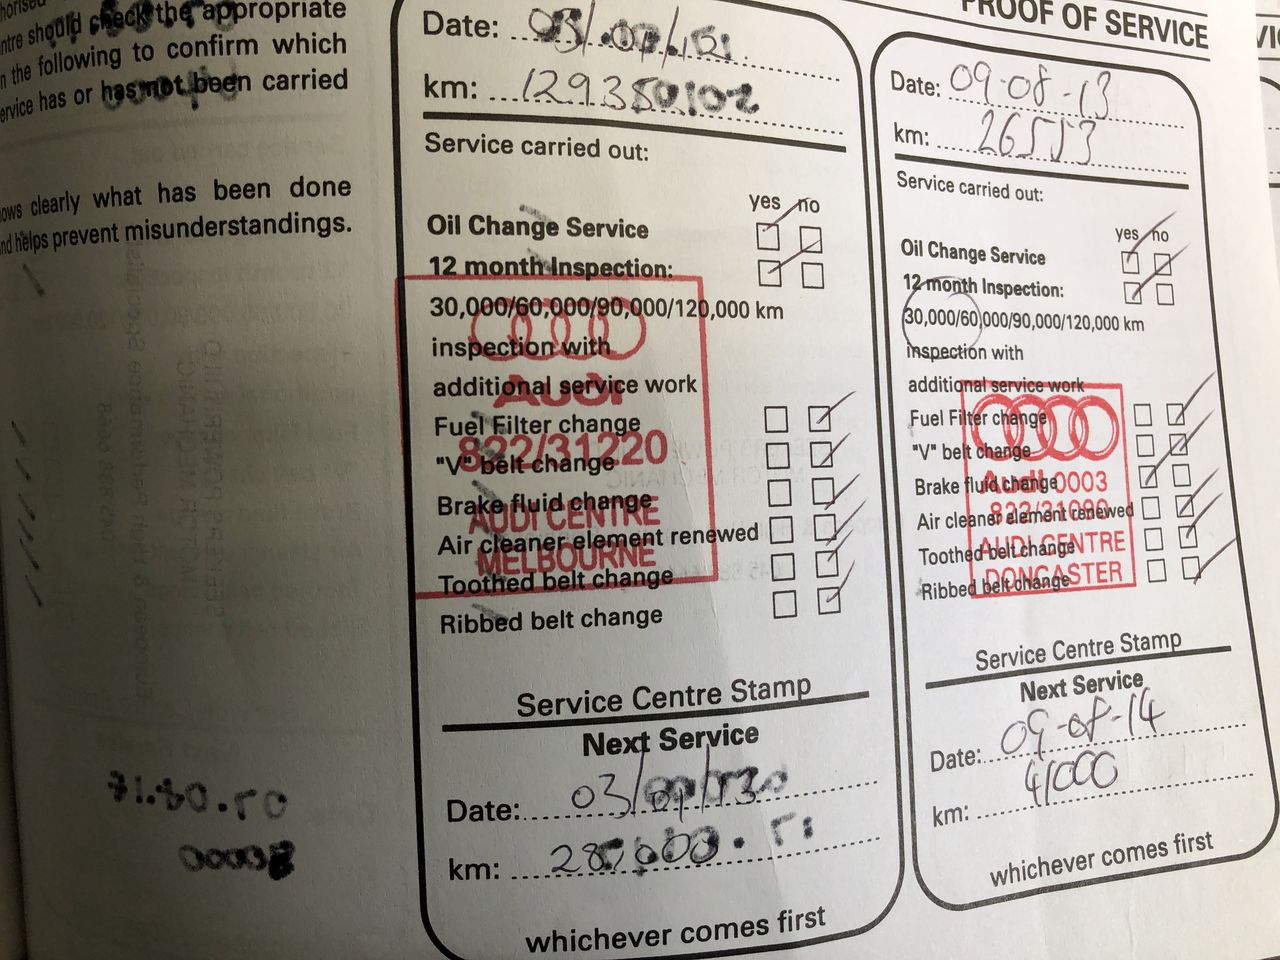 the appropriate
n the following to confirm which
service has or has not been carried
ows clearly what has been done
nd helps prevent misunderstandings.
Date:
km:
Service carried out:
yes no
Oil Change Service
12 month Inspection:
30,000/60,000/90,000/120,000 km
inspection with
additional service work
Fuel Filter change
"V" belt change
Brake fluid change
Air cleaner element renewed
Toothed belt change
Ribbed belt change
AUDI
822/31220
AUDI CENTRE
MELBOURNE
Service Centre Stamp
Next Service
Date:
km:
whichever comes first
PROOF OF SERVICE
Date: 09-08-13
km: 26553
Service carried out:
yes no
Oil Change Service
12 month Inspection:
30,000/60,000/90,000/120,000 km
inspection with
additional service work
Fuel Filter change
"V" belt change
Brake fluid change
Air cleaner element renewed
Toothed belt change
Ribbed belt change
Audi 0003
AUDI CENTRE
DONCASTER
Service Centre Stamp
Next Service
Date: 09-08-14
km: 41000
whichever comes first